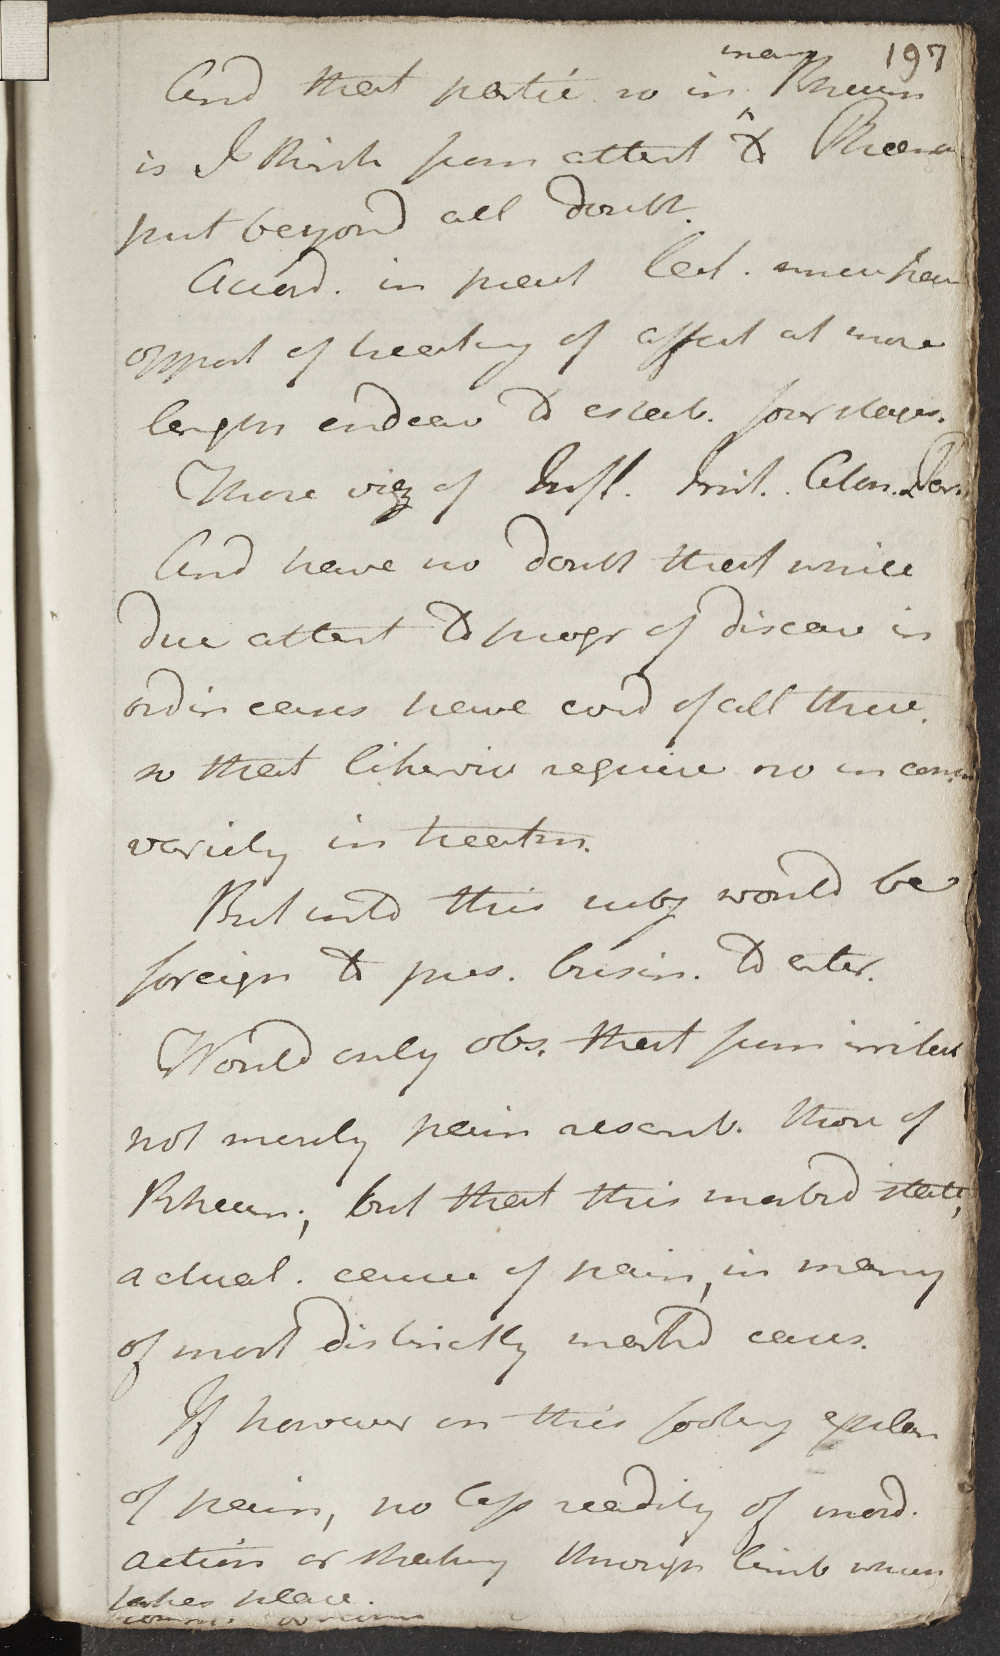 197
many
And that partic. so in ^ Rheum
is I think from attent to Phenom
put beyond all doubt.
Accord. in prect Lect. when
opport of treating of affect at more
length endeav to estab. four stages.
These viz of Infl. Irrit. Clon. Tor.
And have no doubt that while
due attent to progr of disease in
ordin cases have evid of all these.
so that likewise require no incon
variety in treatm.
But into this subj would be
foreign to pres. busin. to enter.
Would only obs. that from irritat
not merely pain resemb. those of
Rheum; but that this morbid state,
actual. cause of pain, in many
of most distinctly marked cases.
If however on this footing explan
of pain, no less readily of inord.
action or shaking through limb when
takes place.